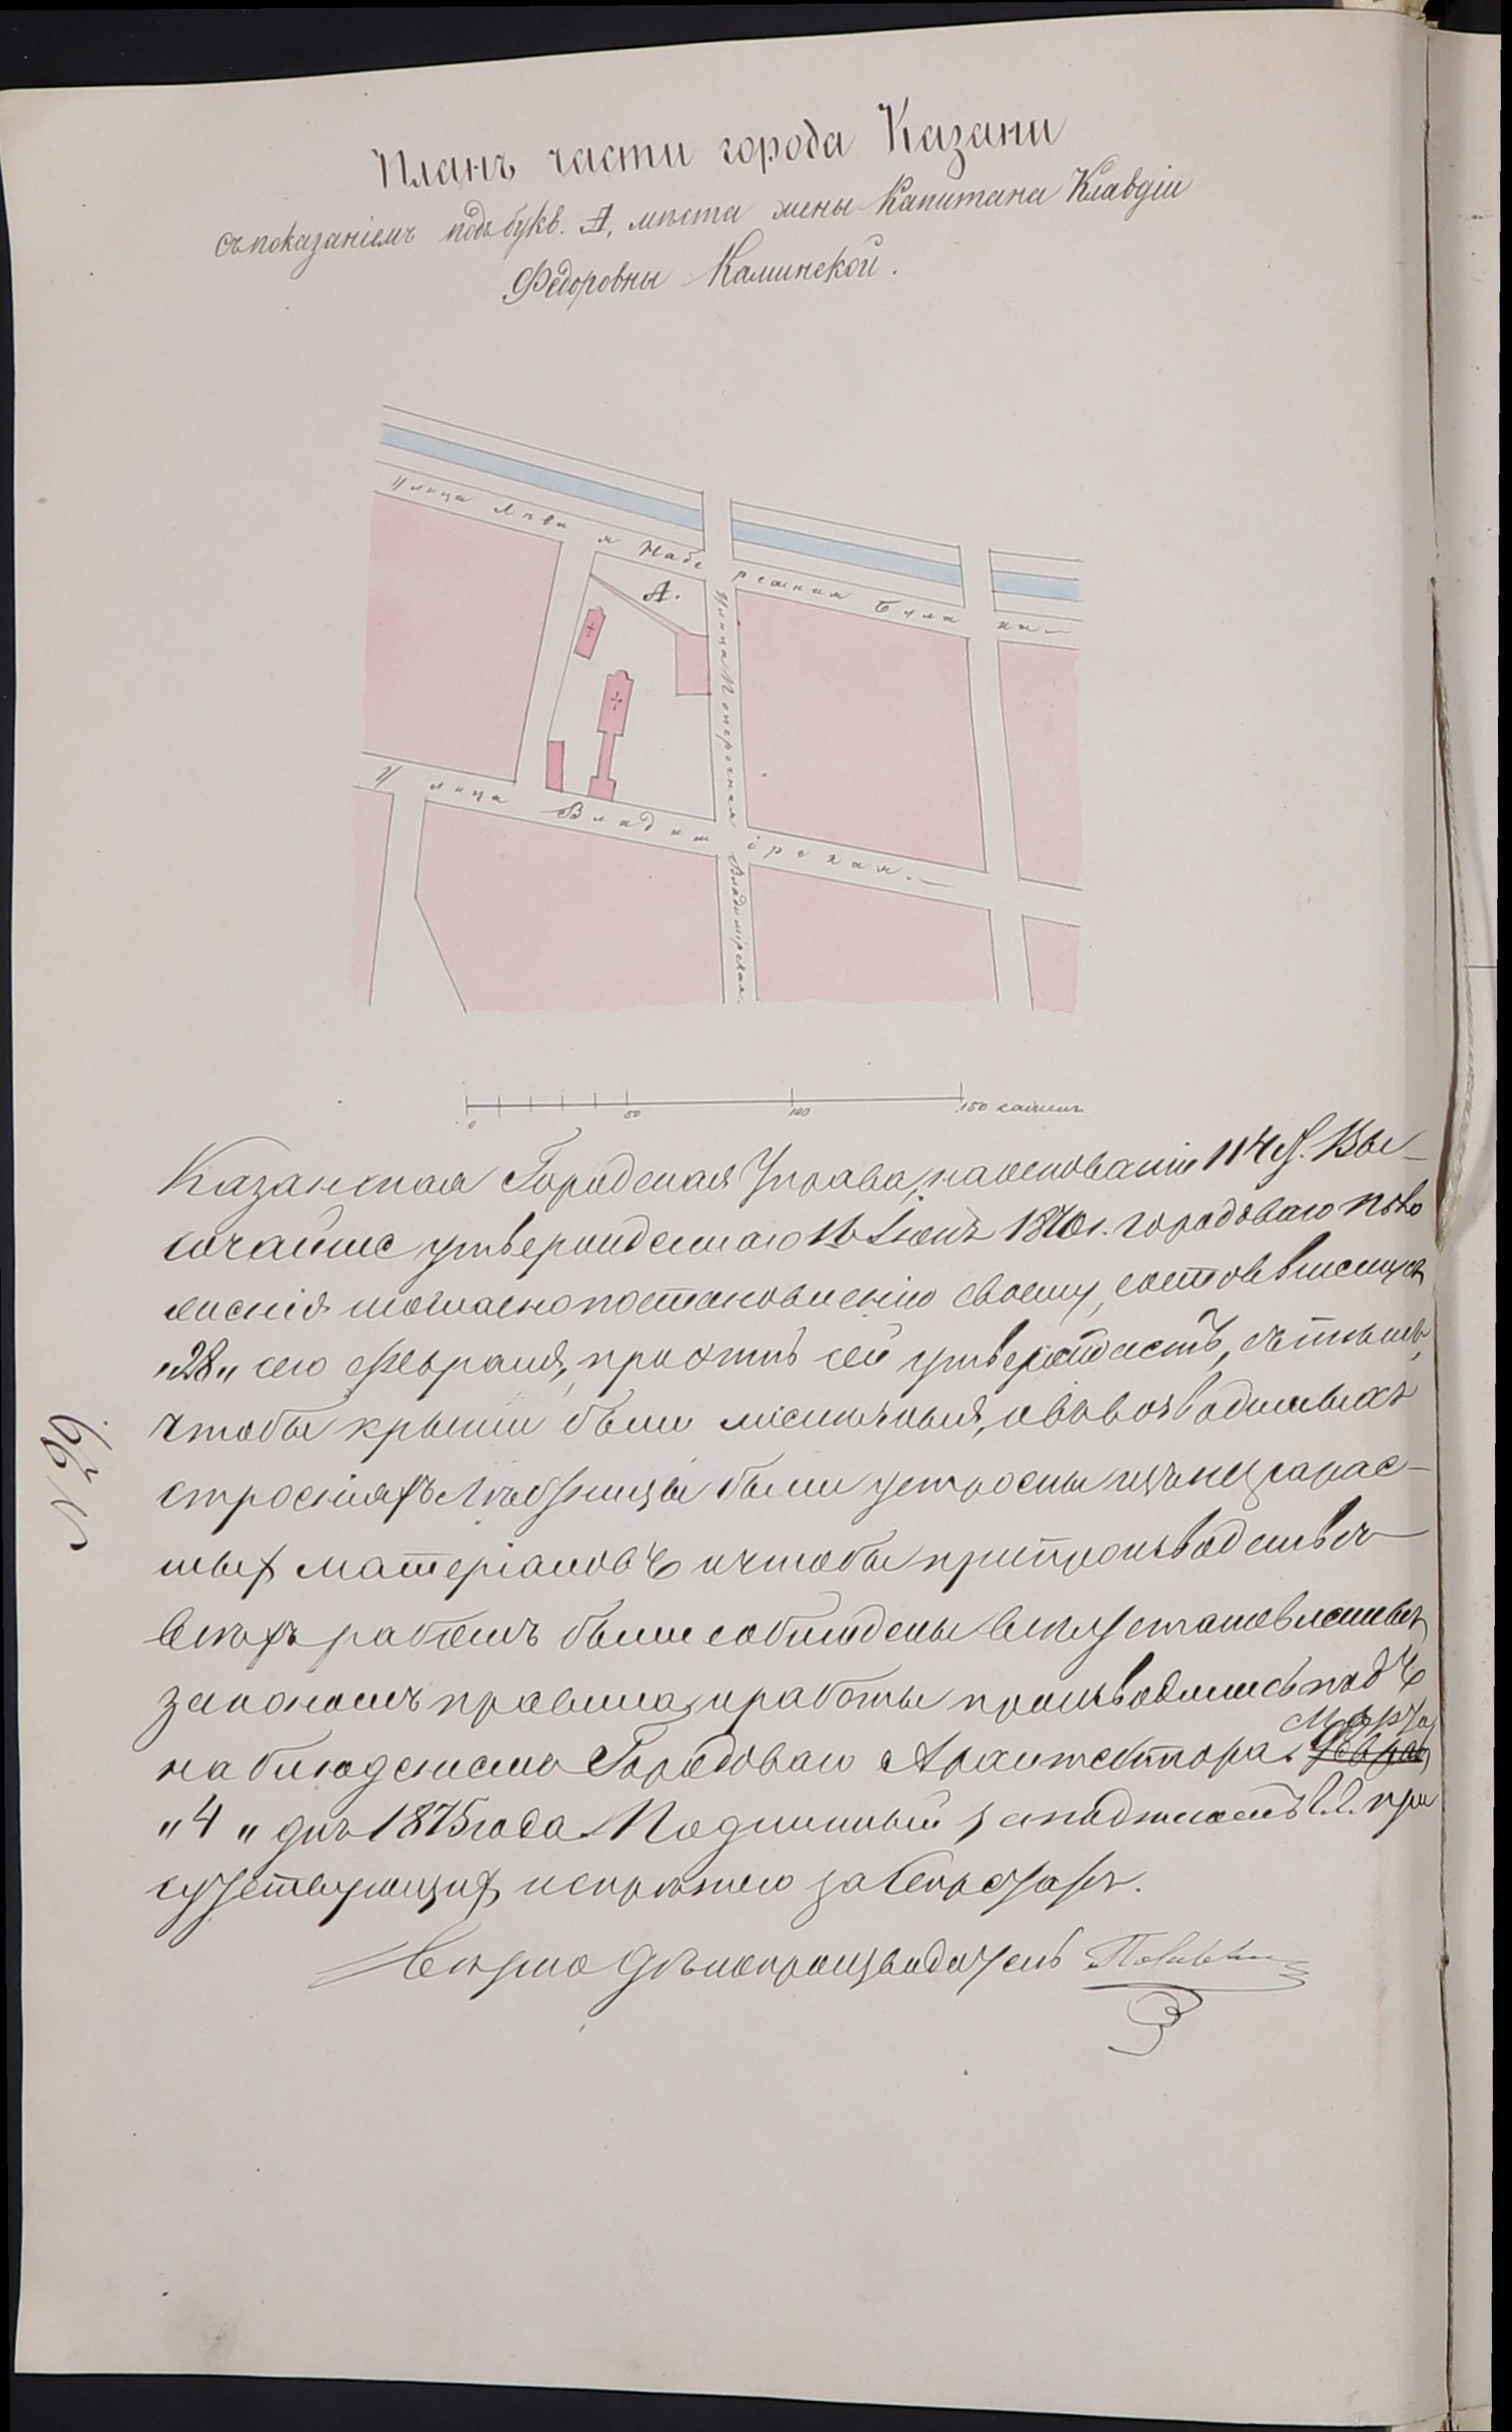 Планъ части города Казани
съ показаніемъ подъ букв. А, мѣста жены Капитана Клавдіи
Федоровны Каминской.
Улица Лѣвая Набережная Булака
А.
Улица Поперечная Владимірская.
Улица Владимірская.
0 50 100 150 сажень
Казанская Городская Управа, на основаніи 114 ст. Вы-
сочайше утвержденнаго 16 Іюня 1870 г. городоваго поло
женія и согласно постановленію своему, состоявшемуся
"28" сего Февраля, проэктъ сей утверждаетъ, съ тѣмъ,
чтобы крыши были желѣзныя, и въ возводимыхъ
строеніяхъ лѣстницы были устроены изъ несгарае-
мыхъ матеріаловъ и чтобы при производствѣ
всѣхъ работъ были соблюдены всѣ установленныя
закономъ правила, и работы производились подъ
наблюденіемъ Городоваго Архитектора. Марта Февраля
"4" дня 1875 года. Подлинный за подписомъ г.г. при
сутствующихъ и скрѣпою за Секретаря.
Вѣрно Дѣлопроизводитель
N 29.